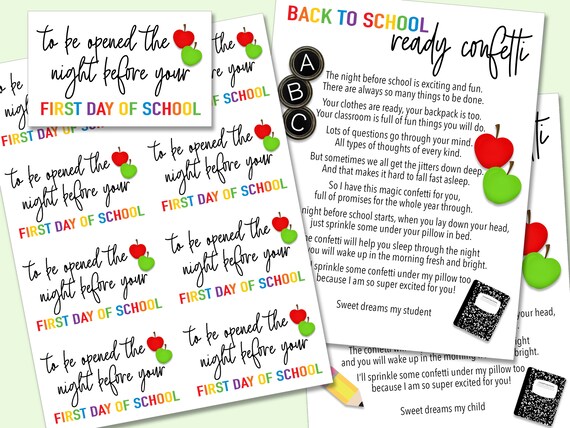 to be opened the
night before your
FIRST DAY OF SCHOOL
OF SCHOOL
to be opened the
night before your
FIRST DAY OF SCHOOL
to be opened the
night before your
FIRST DAY OF SCHOOL
to be opened the
night before your
FIRST DAY OF SCHOOL
to be opened the
night before your
FIRST DAY OF SCHOOL
to be opened the
night before your
FIRST DAY OF SCHOOL
to be opened the
night before your
FIRST DAY OF SCHOOL
BACK TO SCHOOL
ready confetti
A
B
C
The night before school is exciting and fun.
There are always so many things to be done.
Your clothes are ready, your backpack is too.
Your classroom is full of fun things you will do.
Lots of questions go through your mind.
All types of thoughts of every kind.
But sometimes we all get the jitters down deep.
And that makes it hard to fall fast asleep.
So I have this magic confetti for you,
full of promises for the whole year through.
night before school starts, when you lay down your head,
just sprinkle some under your pillow in bed.
confetti will help you sleep through the night
you will wake up in the morning fresh and bright.
sprinkle some confetti under my pillow too
because I am so super excited for you!
Sweet dreams my student
your head,
The confetti
and you will wake up in the morning bright.
I'll sprinkle some confetti under my pillow too
because I am so super excited for you!
Sweet dreams my child